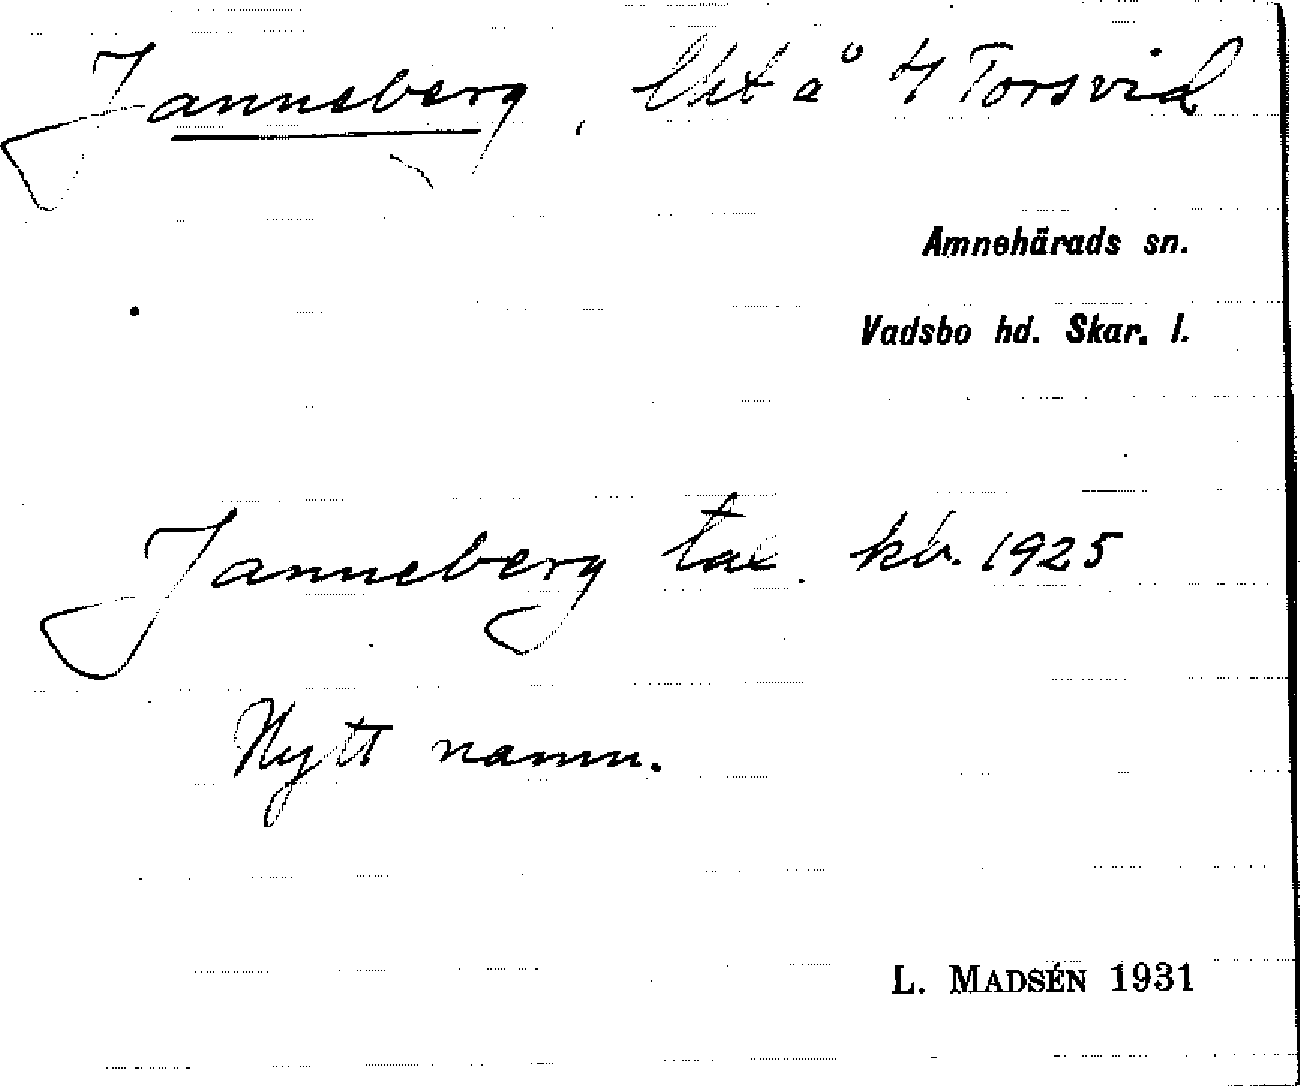 Janneberg, lht å 4/ Torsvid
Amnehärads sn.
Vadsbo hd. Skar. l.
Janneberg tax. kb. 1925
Nytt namn.
L. MADSÉN 1931